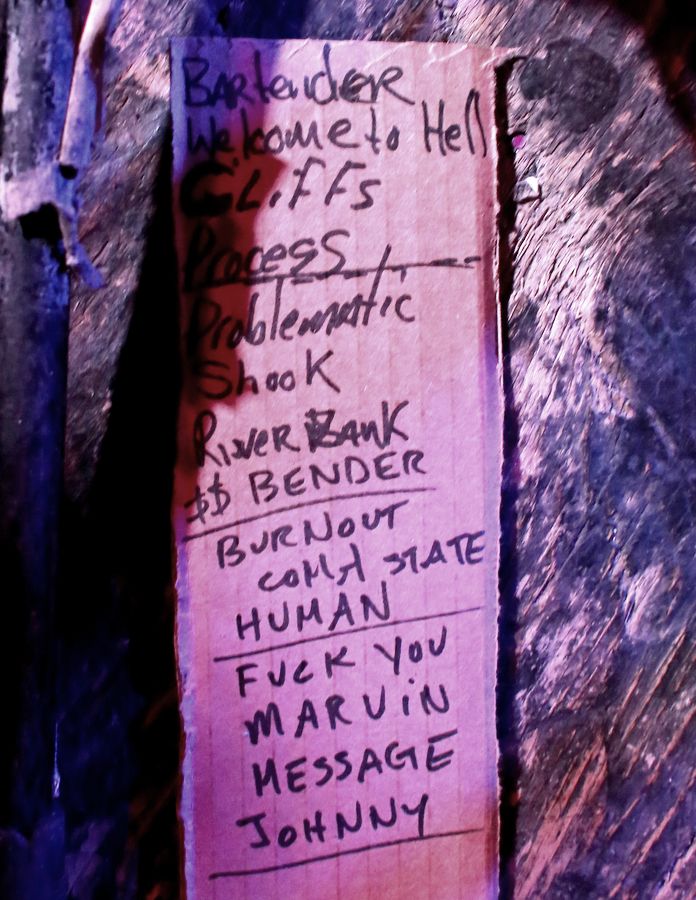 Bartender
Welcome to Hell
CLiFFs
Process
Problematic
Shook
River Bank
$$ BENDER
BURNOUT
COMA STATE
HUMAN
FUCK YOU
MARViN
MESSAGE
JOHNNY